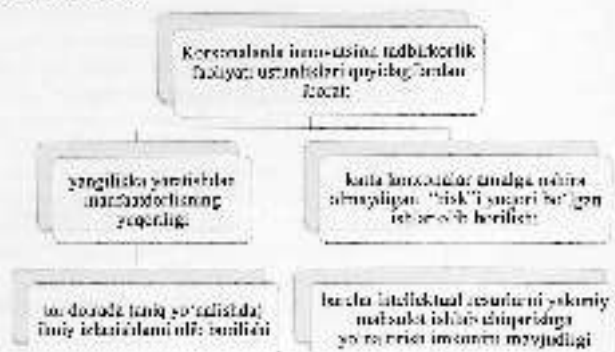 Korxonalarda innovatsion tadbirkorlik
faoliyati ustunliklari quyidagilardan
iborat:
yangilikka yaratishdan
manfaatdorlikning
yuqoriligi
katta korxonalar amalga oshira
olmaydigan "risk"i yuqori bo'lgan
ishlar olib borilishi
tor doirada aniq yo'nalishdagi
ilmiy izlanishlarni olib borilishi
barcha intellektual resurslarni yakuniy
mahsulot ishlab chiqarishga
yo'naltirish imkoniti mavjudligi